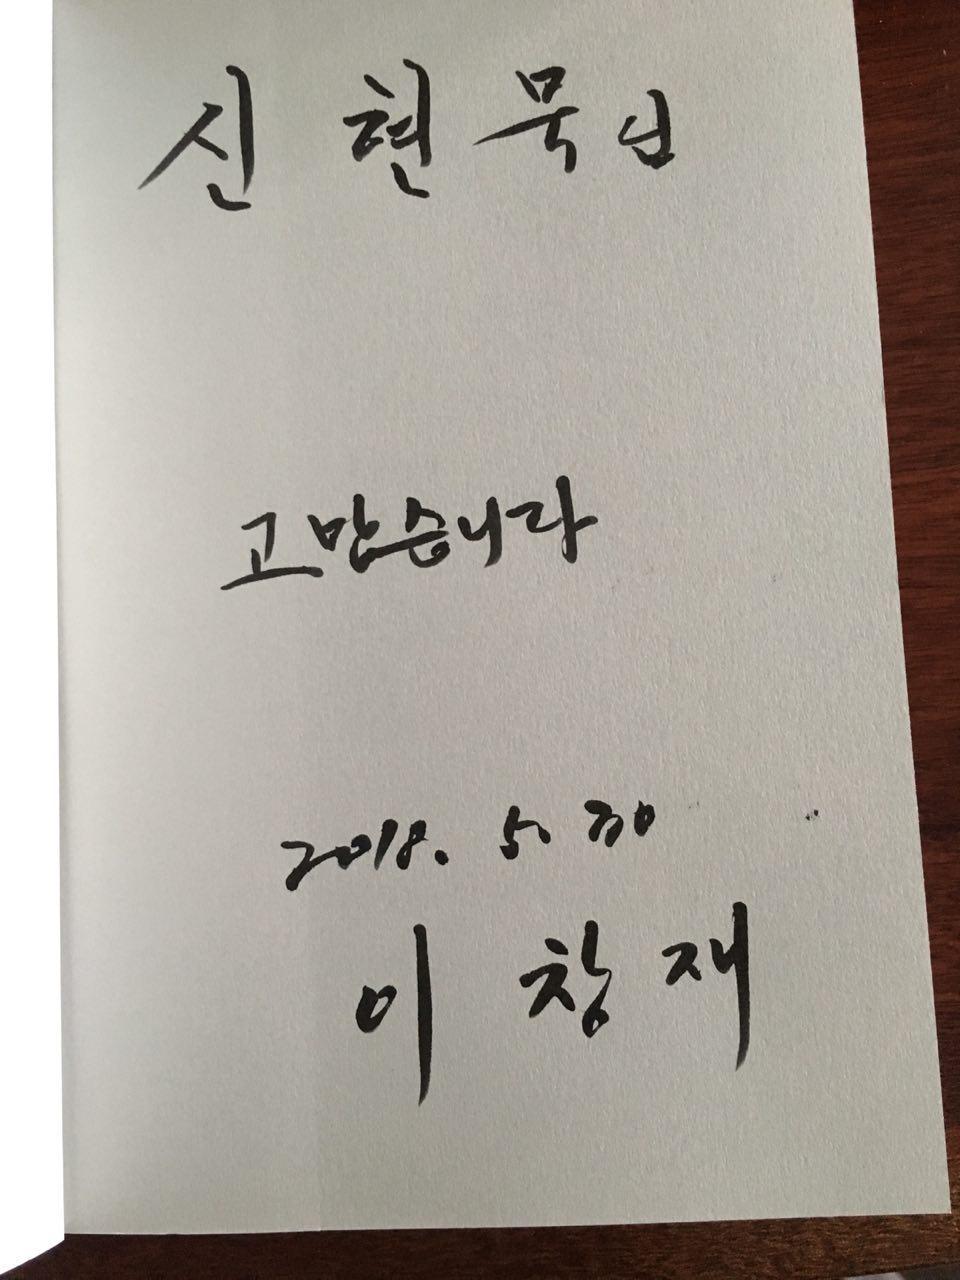 신현묵님
고맙습니다
2018. 5. 30
이창재